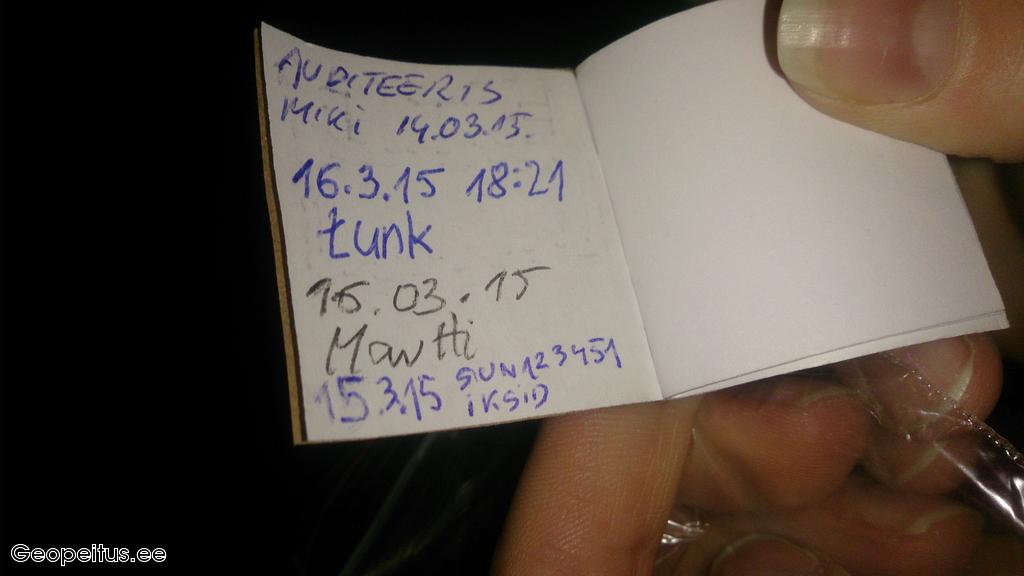 AUDITEERIS
MIKI 14.03.15.
16.3.15 18:21
tunk
15.03.15
Martti
15.3.15 SUN123451
iKSiD
Geopeitus.ee